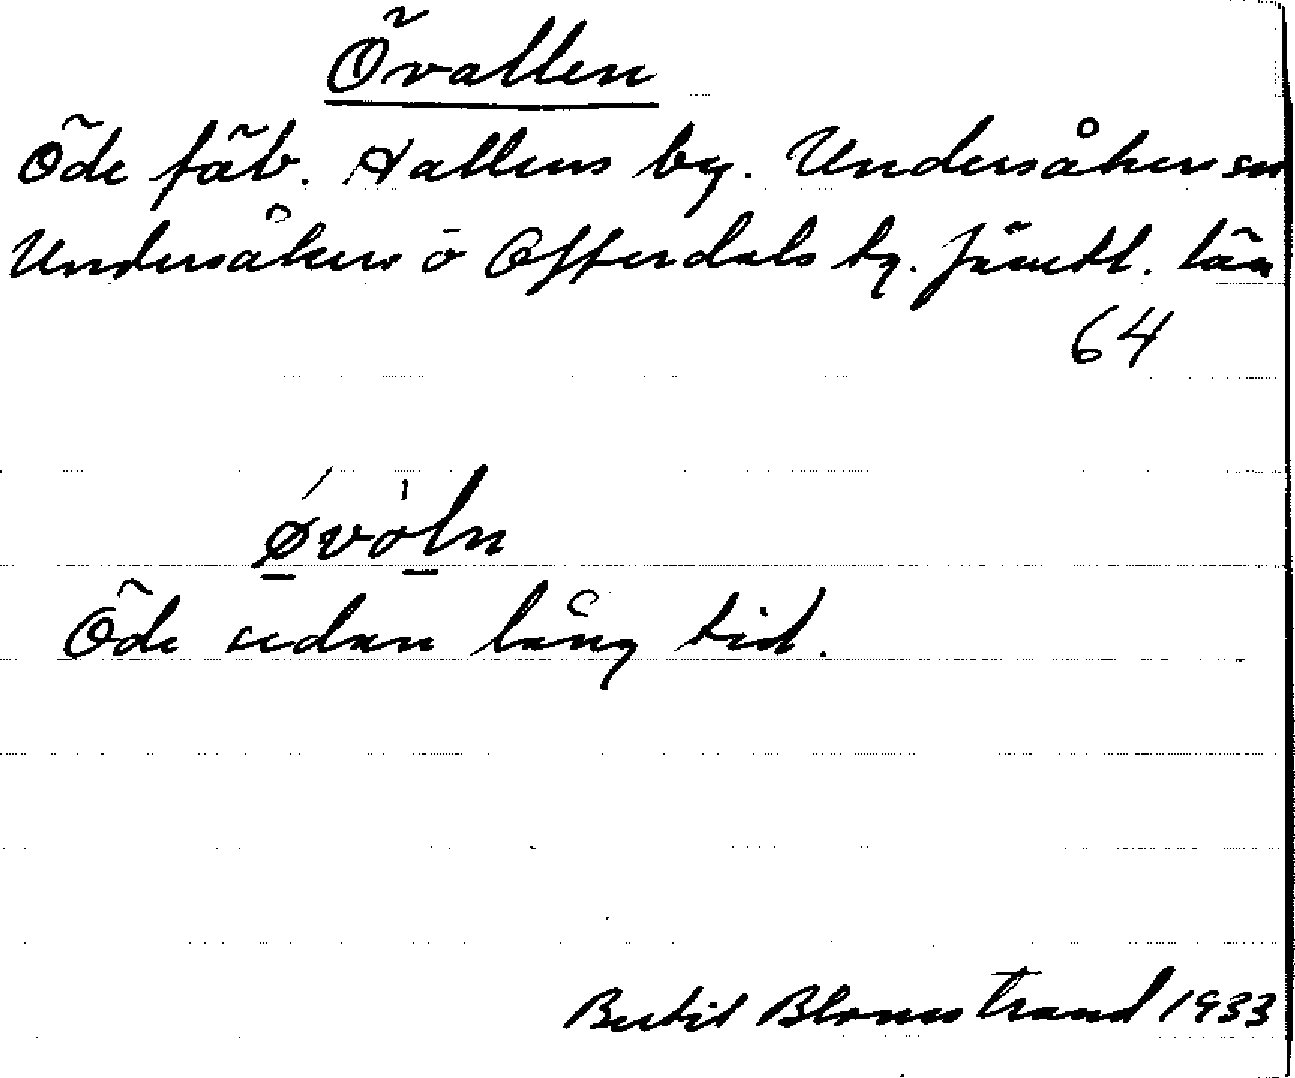 Övallen
Öde fäb. Hallens by. Undersåkers sn
Undersåkers o Offerdals tg. Jämtl. län
64
øvöln
Öde sedan lång tid.
Bertil Blomstrand 1933